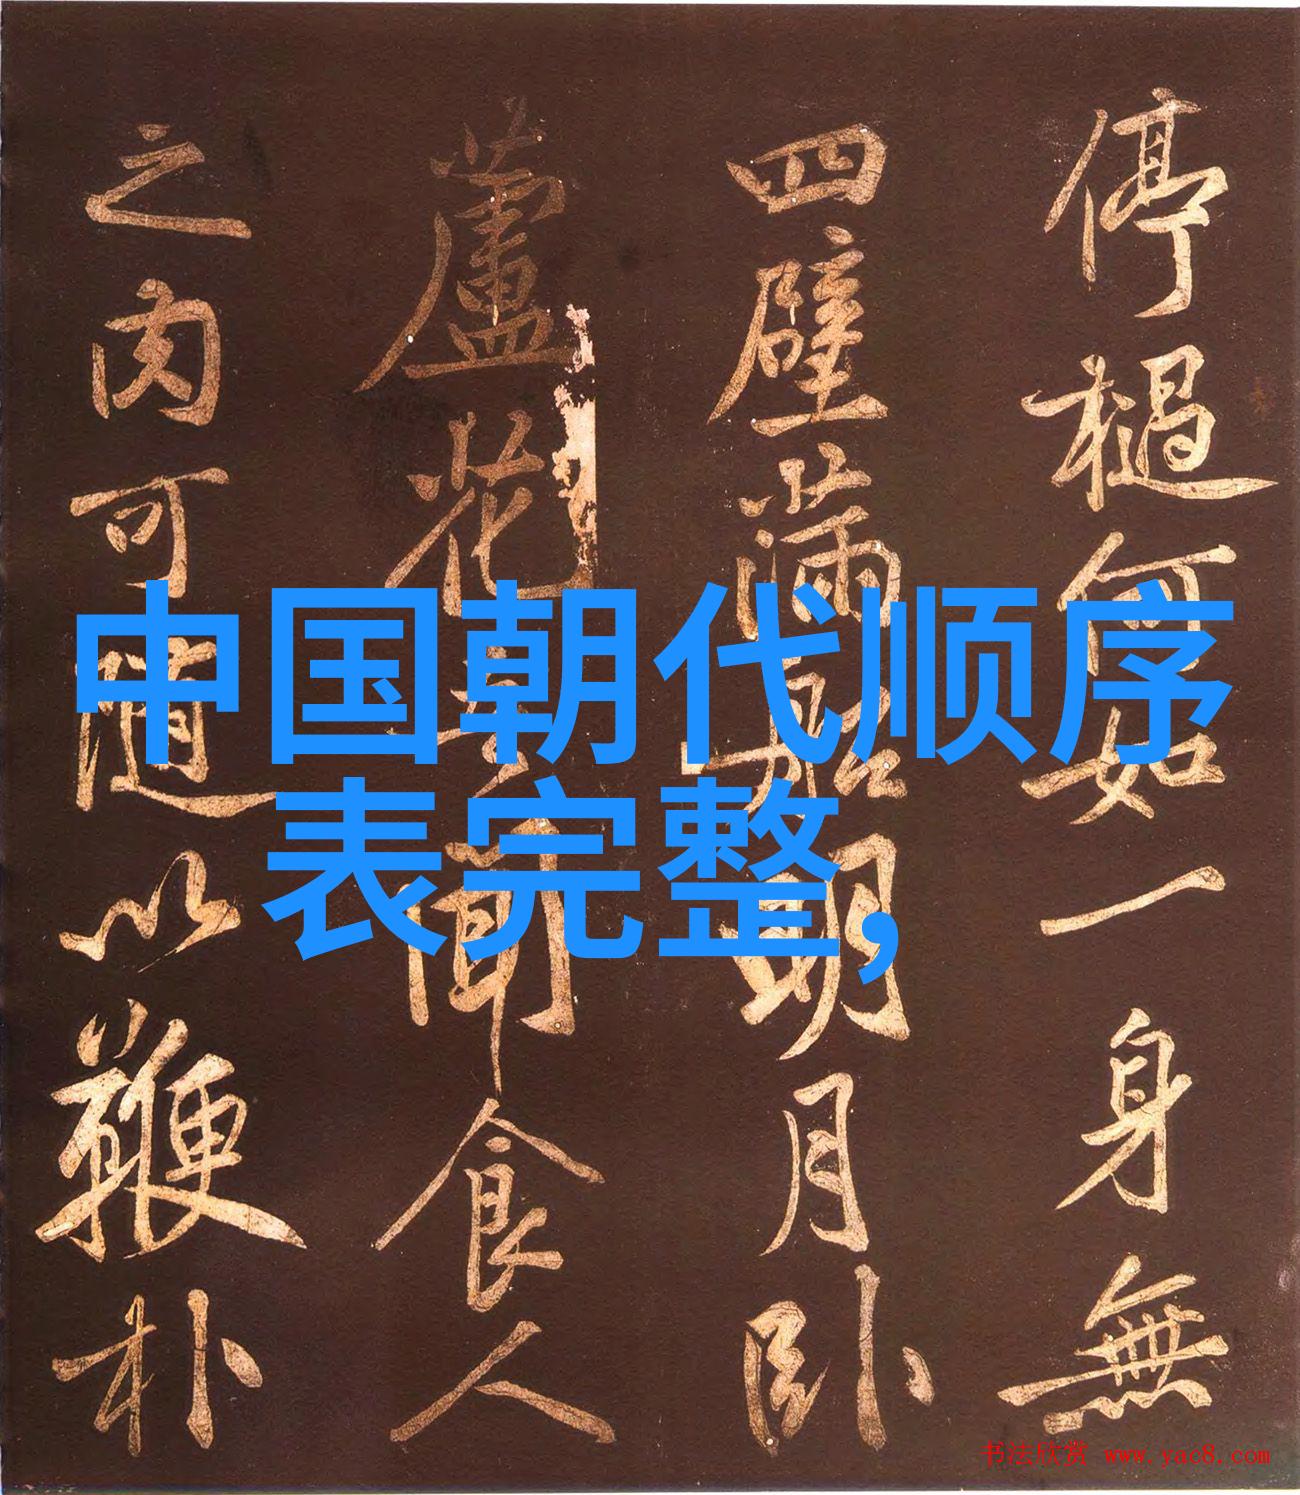 中国朝代顺序
表完整,
停檛何如一身無
四壁滿船明月卧
蘆花
聞食人
之肉可隨以鞭朴
书法欣赏 www.yac8.com